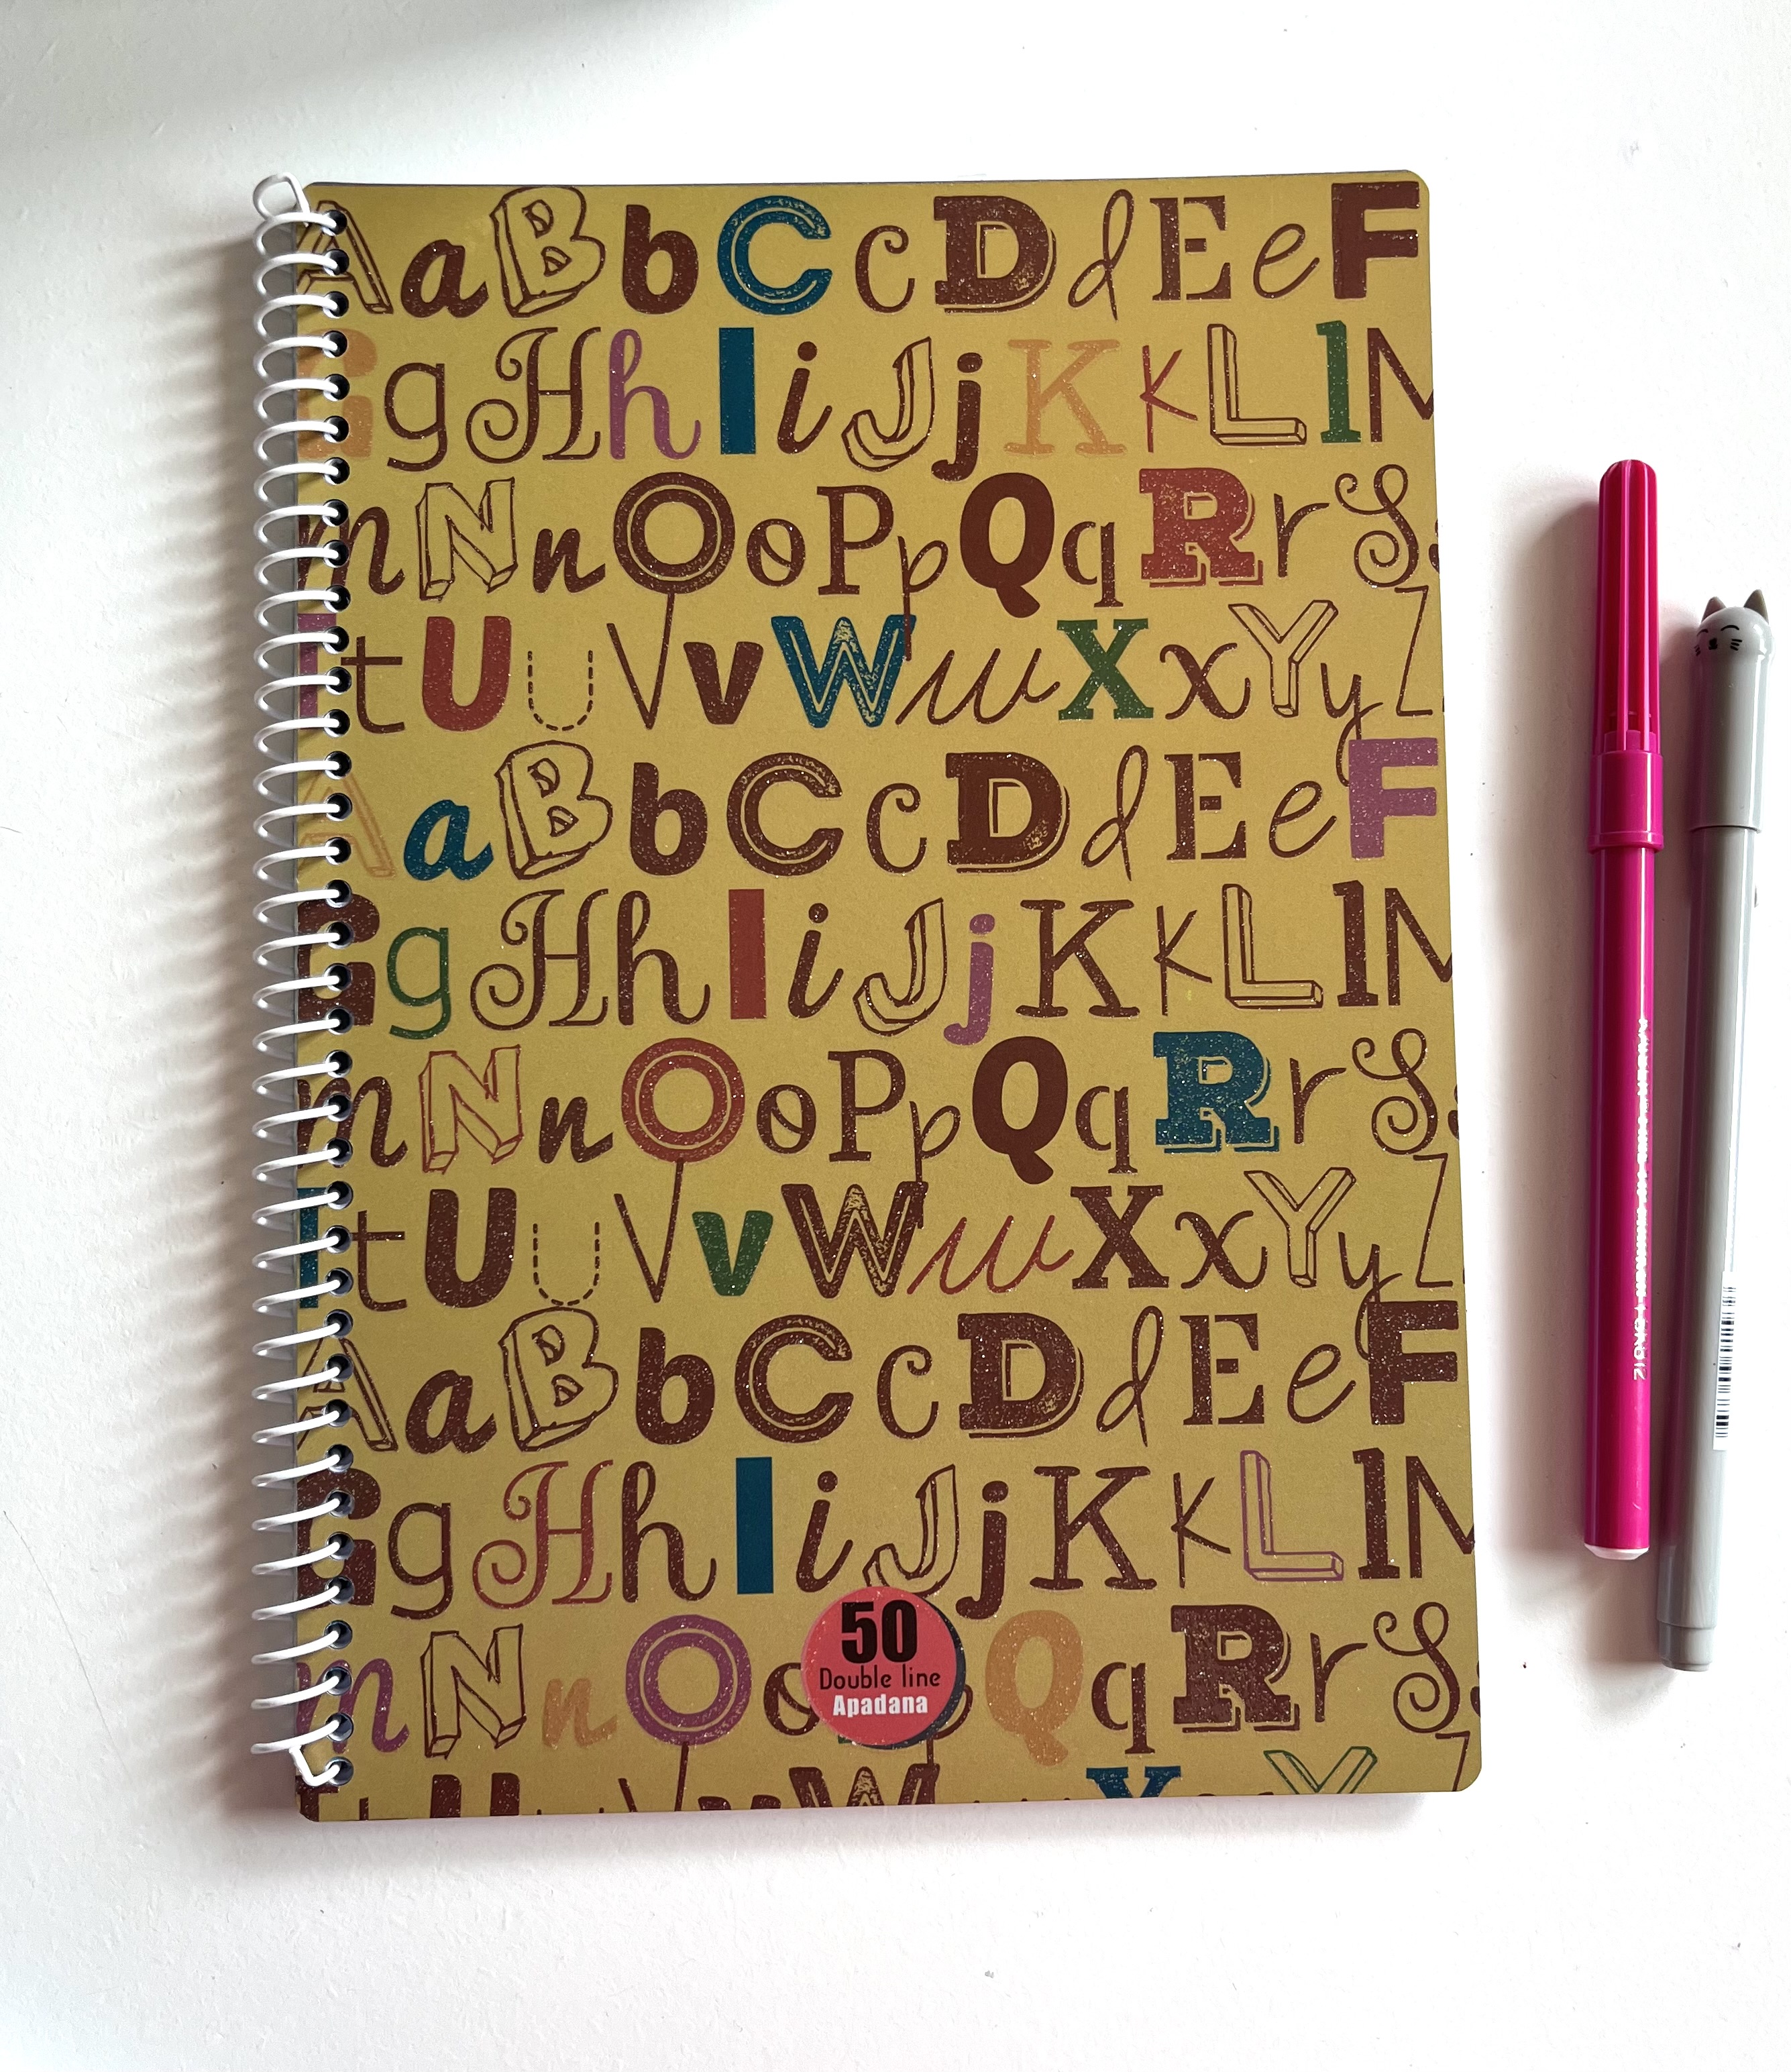 AaBbCcDdEeF
GgHhIiJjKkLlM
mNnOoPpQqRrSs
TtUuVvWwXxYyZ
AaBbCcDdEeF
GgHhIiJjKkLlM
mNnOoPpQqRrSs
TtUuVvWwXxYyZ
AaBbCcDdEeF
GgHhIiJjKkLlM
mNnOo QqRrSs
50
Double line
Apadana